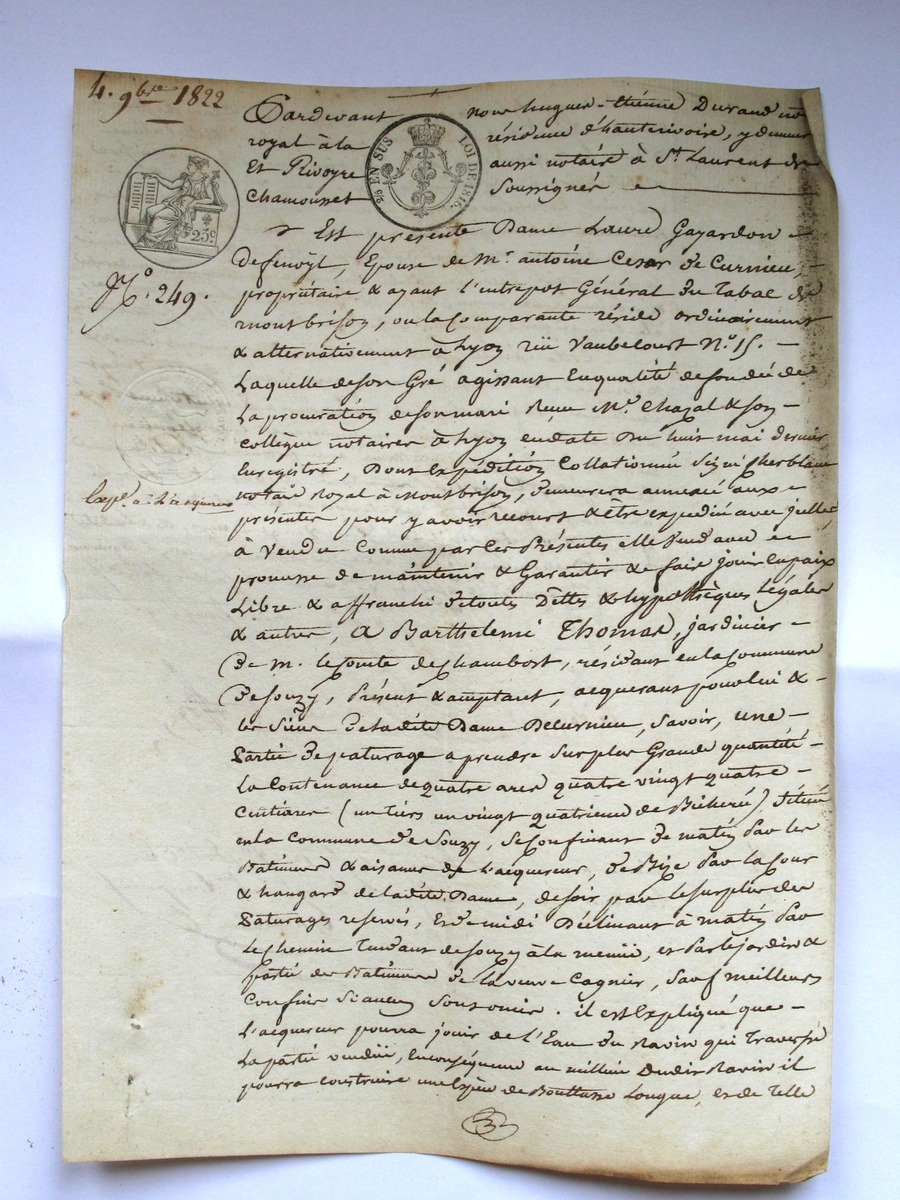 4. 9bre 1822
Pardevant nous hugues-étienne Durand no
royal à la résidence d'hauterivoire, y demeur
Et Rivoyre aussi notaire à St. Laurent de
Chamousset Soussignés
25 EN SUS LOI DE 1816.
25c
No. 249.
Est présente Dame Laure Gayardon
Defenoÿl, Epouse de Mr. antoine Cesar de Curnieu,
propriétaire & ayant l'entrepot Général du Tabac de
montbrison, ou la Comparante réside ordinairement
& alternativement à Lyon rüe Vaubecourt No. 15.
Laquelle deson Gré agissant Enqualité defondée de
La procuration deson mari Reçue Me. Chazal & son
collègue notaires à Lyon endate Du huit mai dernier
Enregistré, Dont Expédition Collationnée
notaire Royal à Montbrison, demeurera annexée aux
présentes pour y avoir recours & être expédiée avec icelles
à Vendu Comme par Ces Présentes elle Vend avec
promesse de maintenir & Garantir & de faire jouir Enpaix
Libre & affranchi detoutes Dettes & hypothèques Légales
& autres, à Barthelemi Thomas, jardinier
De m. le Comte de Chambost, résidant en la Commune
De Souzy, Présent & acceptant, acquerant pour lui &
les Siens De ladite Dame DeCurnieu, Savoir, une
Partie De paturage a prendre Sur plus Grande quantité
La Contenance de quatre ares quatre vingt quatre
Centiares (un tiers un vingt quatrieme de Bicherée) Située
en la Commune de Souzy, Se Confinant De matin Par les
Batimens & aisances de L'acquereur, De Bize Par la Cour
& hangard de ladite Dame, de soir par le surplus des
Paturages reservés, Et de midi Déclinant à matin Par
Le Chemin Tendant de Souzy à la , et Par le jardin &
partie des Batimens De La veuve Cagnier, Sauf meilleurs
Confins Si aucuns Sont omis. il est Expliqué que
L'acquereur pourra jouir de l'Eau du Ravin qui Traverse
La partie vendüe, En conséquence au millieu Dudit Ravin il
pourra construire une Espèce de Bouttasse Longue, et de Telle